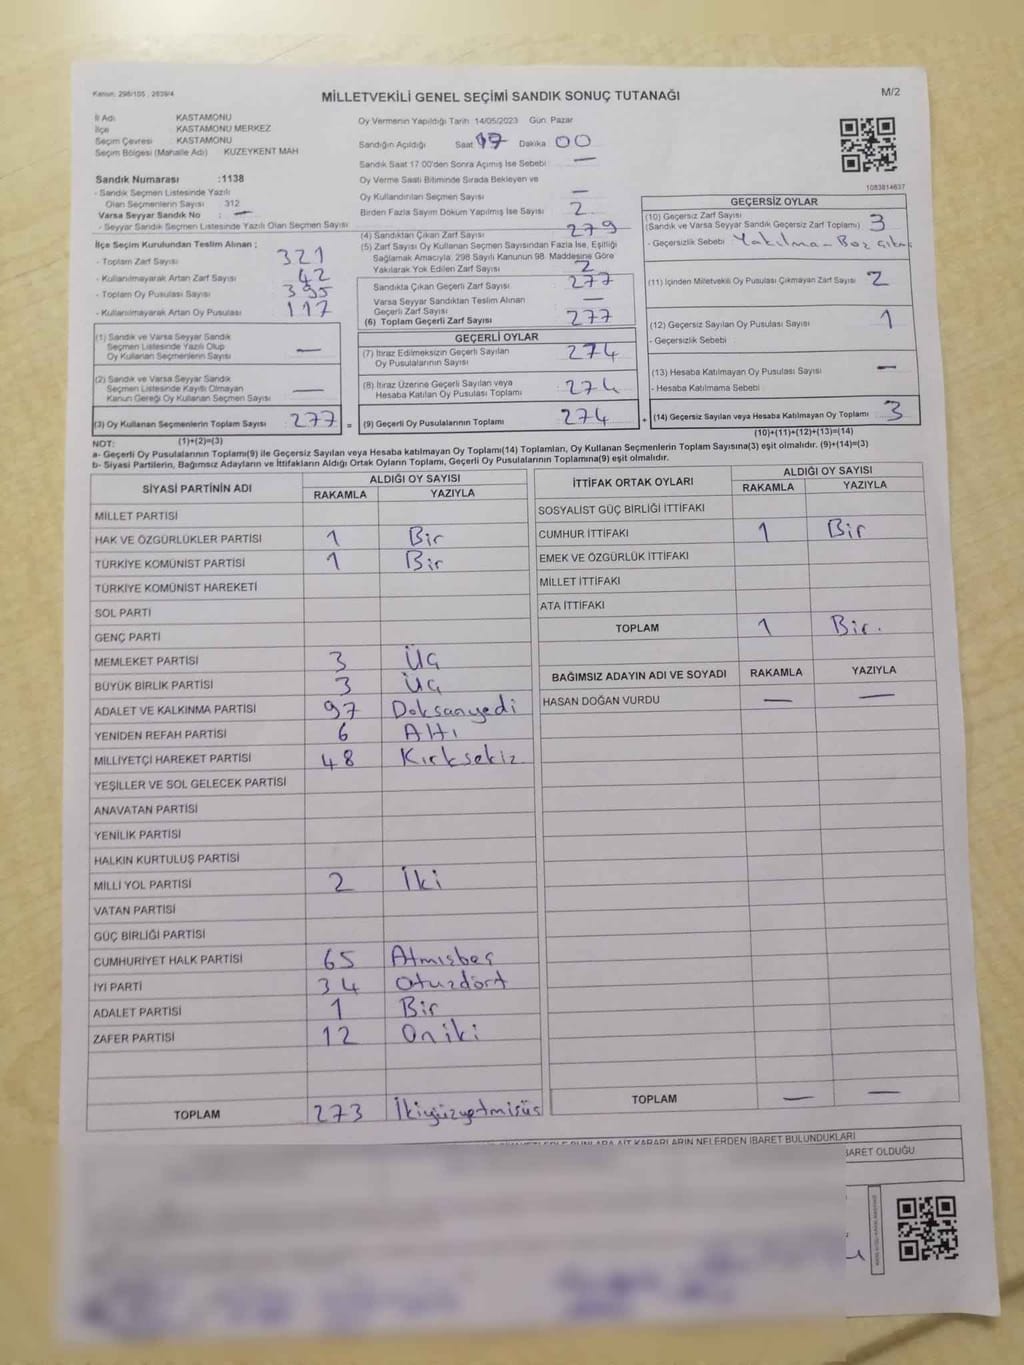 Kanun: 298/105 , 2839/4
MİLLETVEKİLİ GENEL SEÇİMİ SANDIK SONUÇ TUTANAĞI
M/2
İl Adı KASTAMONU
İlçe KASTAMONU MERKEZ
Seçim Çevresi : KASTAMONU
Seçim Bölgesi (Mahalle Adı) : KUZEYKENT MAH
Sandık Numarası :1138
- Sandık Seçmen Listesinde Yazılı
Olan Seçmenlerin Sayısı 312
Varsa Seyyar Sandık No : —
- Seyyar Sandık Seçmen Listesinde Yazılı Olan Seçmen Sayısı :
İlçe Seçim Kurulundan Teslim Alınan ;
- Toplam Zarf Sayısı 321
- Kullanılmayarak Artan Zarf Sayısı 42
- Toplam Oy Pusulası Sayısı 395
- Kullanılmayarak Artan Oy Pusulası 117
(1) Sandık ve Varsa Seyyar Sandık
Seçmen Listesinde Yazılı Olup
Oy Kullanan Seçmenlerin Sayısı —
(2) Sandık ve Varsa Seyyar Sandık
Seçmen Listesinde Kayıtlı Olmayan
Kanun Gereği Oy Kullanan Seçmen Sayısı —
(3) Oy Kullanan Seçmenlerin Toplam Sayısı 277 =
(1)+(2)=(3)
Oy Vermenin Yapıldığı Tarih 14/05/2023 Gün Pazar
Sandığın Açıldığı Saat 17 Dakika 00
Sandık Saat 17.00'den Sonra Açımış İse Sebebi : —
Oy Verme Saati Bitiminde Sırada Bekleyen ve
Oy Kullandırılan Seçmen Sayısı —
Birden Fazla Sayım Döküm Yapılmış İse Sayısı 2
(4) Sandıktan Çıkan Zarf Sayısı 279
(5) Zarf Sayısı Oy Kullanan Seçmen Sayısından Fazla İse, Eşitliği
Sağlamak Amacıyla, 298 Sayılı Kanunun 98. Maddesine Göre
Yakılarak Yok Edilen Zarf Sayısı 2
Sandıkta Çıkan Geçerli Zarf Sayısı 277
Varsa Seyyar Sandıktan Teslim Alınan
Geçerli Zarf Sayısı —
(6) Toplam Geçerli Zarf Sayısı 277
GEÇERLİ OYLAR
(7) İtiraz Edilmeksizin Geçerli Sayılan
Oy Pusulalarının Sayısı 274
(8) İtiraz Üzerine Geçerli Sayılan veya
Hesaba Katılan Oy Pusulası Toplamı 274
(9) Geçerli Oy Pusulalarının Toplamı 274 +
1083814637
GEÇERSİZ OYLAR
(10) Geçersiz Zarf Sayısı
(Sandık ve Varsa Seyyar Sandık Geçersiz Zarf Toplamı) 3
- Geçersizlik Sebebi Yakılma-Boş
(11) İçinden Milletvekili Oy Pusulası Çıkmayan Zarf Sayısı 2
(12) Geçersiz Sayılan Oy Pusulası Sayısı 1
- Geçersizlik Sebebi
(13) Hesaba Katılmayan Oy Pusulası Sayısı —
- Hesaba Katılmama Sebebi
(14) Geçersiz Sayılan veya Hesaba Katılmayan Oy Toplamı 3
(10)+(11)+(12)+(13)=(14)
NOT:
a- Geçerli Oy Pusulalarının Toplamı(9) ile Geçersiz Sayılan veya Hesaba katılmayan Oy Toplamı(14) Toplamları, Oy Kullanan Seçmenlerin Toplam Sayısına(3) eşit olmalıdır. (9)+(14)=(3)
b- Siyasi Partilerin, Bağımsız Adayların ve İttifakların Aldığı Ortak Oyların Toplamı, Geçerli Oy Pusulalarının Toplamına(9) eşit olmalıdır.
SİYASİ PARTİNİN ADI ALDIĞI OY SAYISI
RAKAMLA YAZIYLA
MİLLET PARTİSİ
HAK VE ÖZGÜRLÜKLER PARTİSİ 1 Bir
TÜRKİYE KOMÜNİST PARTİSİ 1 Bir
TÜRKİYE KOMÜNİST HAREKETİ
SOL PARTİ
GENÇ PARTİ
MEMLEKET PARTİSİ 3 Üç
BÜYÜK BİRLİK PARTİSİ 3 Üç
ADALET VE KALKINMA PARTİSİ 97 Doksanyedi
YENİDEN REFAH PARTİSİ 6 Altı
MİLLİYETÇİ HAREKET PARTİSİ 48 Kırksekiz
YEŞİLLER VE SOL GELECEK PARTİSİ
ANAVATAN PARTİSİ
YENİLİK PARTİSİ
HALKIN KURTULUŞ PARTİSİ
MİLLİ YOL PARTİSİ 2 İki
VATAN PARTİSİ
GÜÇ BİRLİĞİ PARTİSİ
CUMHURİYET HALK PARTİSİ 65 Atmışbeş
İYİ PARTİ 34 Otuzdört
ADALET PARTİSİ 1 Bir
ZAFER PARTİSİ 12 Oniki
TOPLAM 273 İkiyüzyetmişüç
İTTİFAK ORTAK OYLARI ALDIĞI OY SAYISI
RAKAMLA YAZIYLA
SOSYALİST GÜÇ BİRLİĞİ İTTİFAKI
CUMHUR İTTİFAKI 1 Bir
EMEK VE ÖZGÜRLÜK İTTİFAKI
MİLLET İTTİFAKI
ATA İTTİFAKI
TOPLAM 1 Bir.
BAĞIMSIZ ADAYIN ADI VE SOYADI RAKAMLA YAZIYLA
HASAN DOĞAN VURDU — —
TOPLAM — —
BUNLARA AİT KARARLARIN NELERDEN İBARET BULUNDUKLARI
İBARET OLDUĞU